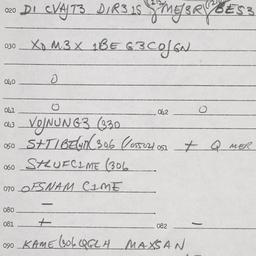 020 DI CVAJT3 DIR3 1S MEJ3R BES3
030 XD M.3 X 1BE G3COJGN
040 0
041 0 042 0
043 VOJNUNG3 (330
050 S+TIBE 306 051 + Q MER
060 S+LUFC1ME (306
070 OFSNAM C1ME
080 —
081 + 082 —
090 KAME (306 QGL4 MAXSAN